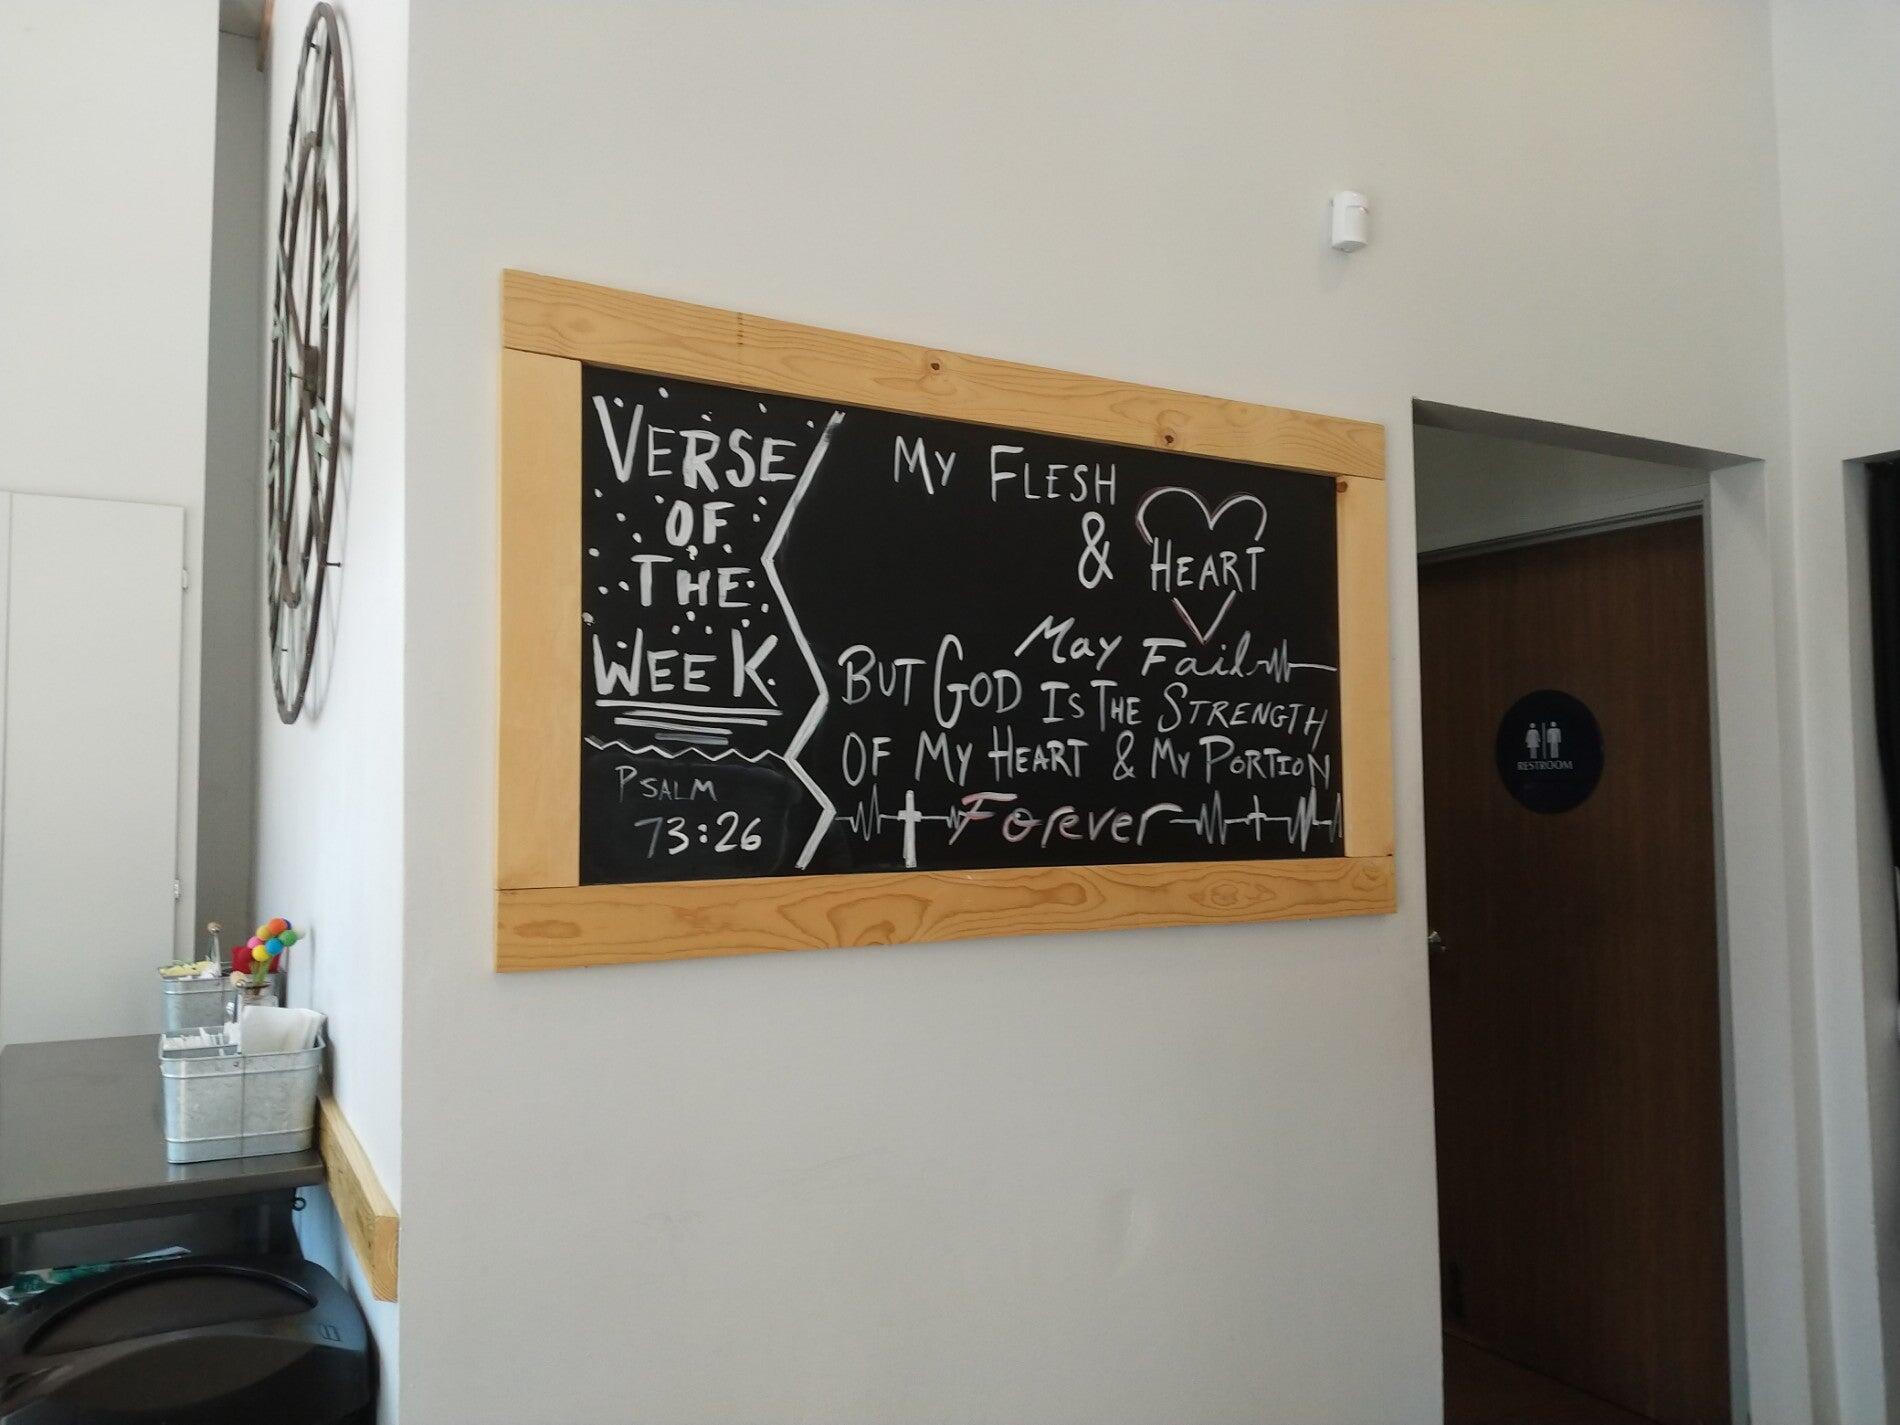 VERSE
OF
THE
WEEK
PSALM
73:26
MY FLESH
& HEART
May Fail
BUT GOD IS THE STRENGTH
OF MY HEART & MY PORTION
Forever
RESTROOM